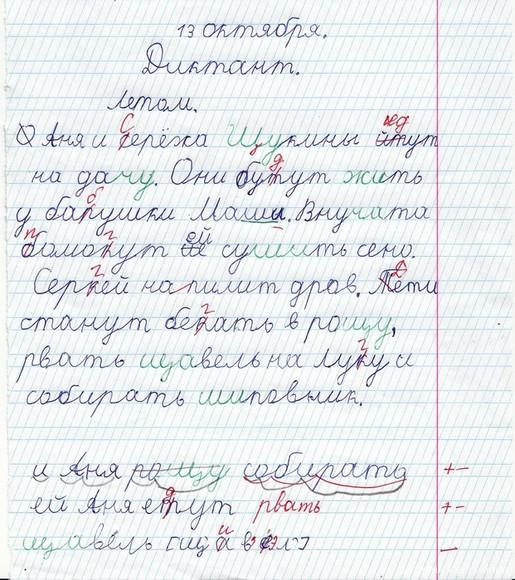 13 октября.
Диктант.
Летом.
Аня и Серёжа Щукины едут
на дачу. Они будут жить
у бабушки Маши. Внучата
помогут ей сушить сено.
Сергей напилит дров. Дети
станут бегать в рощу,
рвать щавель на лугу и
собирать шиповник.
и Аня рощу собирать +-
ей Аня едут рвать +-
щавель [щ'ав'эл'] -